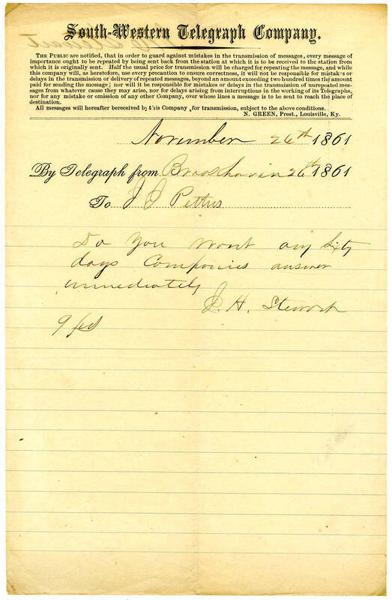 South-Western Telegraph Company.
THE PUBLIC are notified, that in order to guard against mistakes in the transmission of messages, every message of
importance ought to be repeated by being sent back from the station at which it is to be received to the station from
which it is originally sent. Half the usual price for transmission will be charged for repeating the message, and while
this company will, as heretofore, use every precaution to ensure correctness, it will not be responsible for mistakes or
delays in the transmission or delivery of repeated messages, beyond an amount exceeding two hundred times the amount
paid for sending the message; nor will it be responsible for mistakes or delays in the transmission of unrepeated mes-
sages from whatever cause they may arise, nor for delays arising from interruptions in the working of its Telegraphs,
nor for any mistake or omission of any other Company, over whose lines a message is to be sent to reach the place of
destination.
All messages will hereafter be received by this Company for transmission, subject to the above conditions.
N. GREEN, Prest., Louisville, Ky.
November 26th 1861
By Telegraph from Brookhaven 26th 1861
To J J Pettus
Do you want any sixty
days Companies answer
immediately
J. H. Stewart